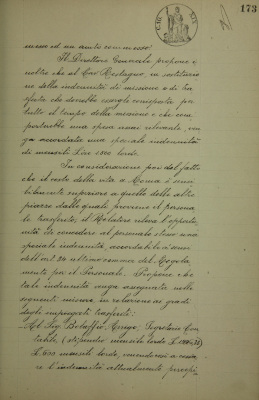 173
messo ad un anno commesso.
Il Direttore Generale propone i-
noltre che al Cav. Restagno, in sostituzio-
ne della indennità di missione e di tra-
sferta che dovrebbe essergli corrisposta per
tutto il tempo della missione e che com-
porterebbe una spesa assai rilevante, ven-
ga accordata una speciale indennità
di mensili Lire 1000 lorde.
In considerazione poi del fatto
che il costo della vita a Roma è sensi-
bilmente superiore a quello delle altre
piazze dalle quali proviene il persona-
le trasferito, il Relatore rileva l'opportu-
nità di concedere al personale stesso una
speciale indennità, accordabile ai sensi
dell'art. 34 ultimo comma del Regola-
mento per il Personale. Propone che
tale indennità venga assegnata nella
seguente misura, in relazione ai gradi
degli impiegati trasferiti:
Al Sig. Bolaffio Arrigo, Segretario Con-
tabile (stipendio mensile lordo
mensili lorde,
re l'indennità attualmente percepi-